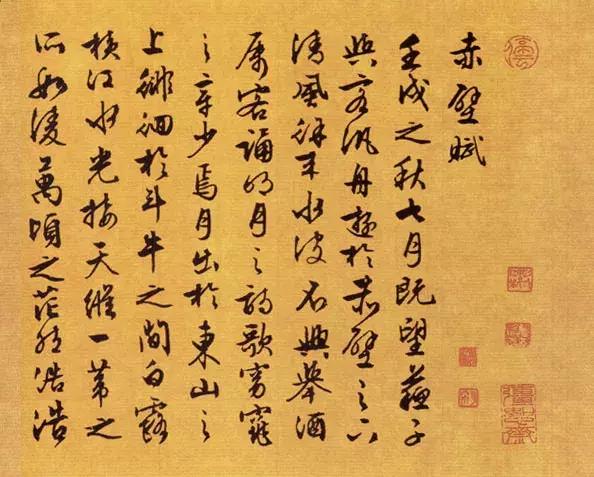 停雲
赤壁賦
壬戌之秋七月既望蘇子
與客汎舟遊於赤壁之下
清風徐來水波不興舉酒
屬客誦明月之詩歌窈窕
之章少焉月出於東山之
上徘徊於斗牛之間白露
橫江水光接天縱一葦之
所如凌萬頃之茫然浩浩